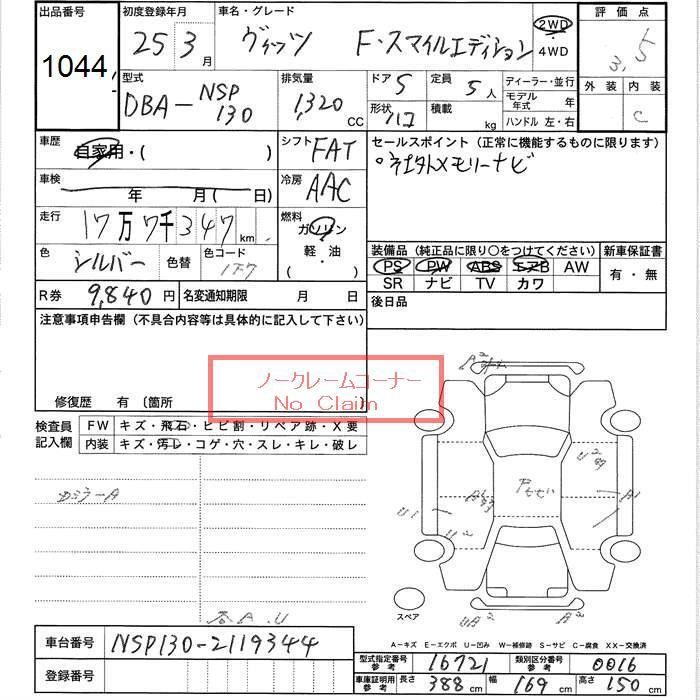 出品番号 初度登録年月 車名・グレード 評価点
1044 25年 3月 ヴィッツ F・スマイルエディション 2WD
4WD
3.5
型式 排気量 ドア 5 定員 5人 ディーラー・並行
外装 内装
DBA-NSP130 1,320 CC モデル年式 年
形状 ハコ 積載 kg ハンドル 左・右 C
車歴 自家用・( ) シフト FAT セールスポイント(正常に機能するものに限ります)
車検 年 月( 日) 冷房 AAC
メモリーナビ
走行 17万7千347km 燃料 ガソリン
軽・油
( )
色 シルバー 色替 色コード 1F7
装備品(純正品に限り○をつけてください) 新車保証書
PS PW ABS エアB AW 有・無
SR ナビ TV カワ
R券 9,840円 名変通知期限 月 日 後日品
注意事項申告欄(不具合内容等は具体的に記入して下さい)
ノークレームコーナー
No Claim
修復歴 有(箇所 )
検査員記入欄 FW キズ・飛石・ヒビ割・リペア跡・X要
内装 キズ・汚レ・コゲ・穴・スレ・キレ・破レ
DミラーA
A2
U2
A1
A1
U1
U2
UA2
U2
スペア
各A.U
A-キズ E-エクボ U-凹み W-補修跡 S-サビ C-腐食 XX-交換済
車台番号 NSP130-2119344
登録番号
型式指定番号 参考 16721 類別区分番号 参考 0016
車庫証明用 参考 長さ 388cm 幅 169cm 高さ 150cm